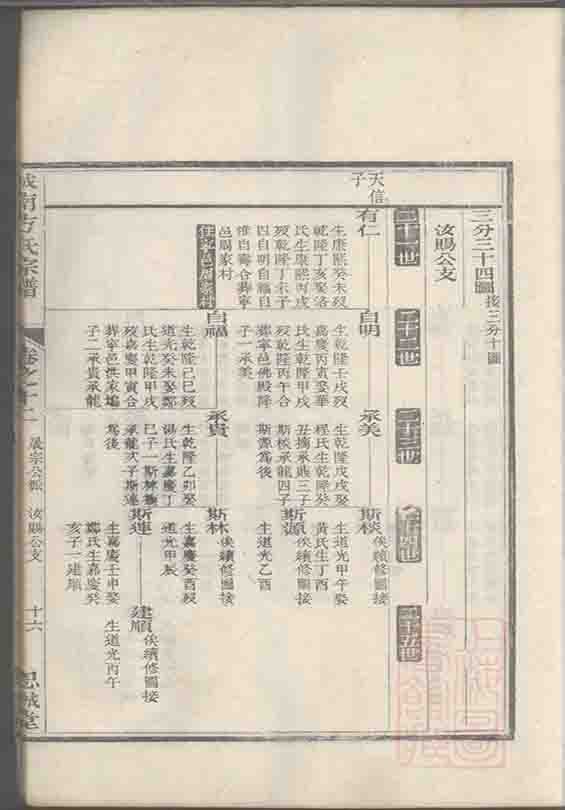 三分三十四圖接三分十圖
汝賜公支
二十一世
二十二世
二十三世
二十四世
二十五世
天信子
有仁
生康熙癸未歿
乾隆丁亥娶洛
氏生康熙丙戌
歿乾隆丁未子
四自明自自
惟自壽合葬寧
邑周家村
住寧邑周家村
自明
生乾隆壬戌歿
嘉慶丙寅娶華
氏生乾隆甲戌
歿乾隆丙午合
葬寧邑佛殿降
子一承美
自福
生乾隆己巳歿
道光癸未娶鄭
氏生乾隆甲戌
歿嘉慶甲寅合
葬寧邑洪家塢
子二承貴承龍
承美
生乾隆戊戌娶
程氏生乾隆癸
丑摘承賬三子
斯棪承龍四子
斯源為後
承貴
生乾隆乙卯娶
湯氏生嘉慶丁
巳子一斯林
承龍次子斯連
為後
斯棪俟續修圖接
生道光甲午娶
黃氏生丁酉
斯源俟續修圖接
生道光乙酉
斯林俟續修圖接
生嘉慶癸酉歿
道光甲辰
斯連
生嘉慶壬申娶
鄭氏生嘉慶癸
亥子一建順
建順俟續修圖接
生道光丙午
城南方氏宗譜
卷之十二
晟宗公派
汝賜公支
十六
思誠堂